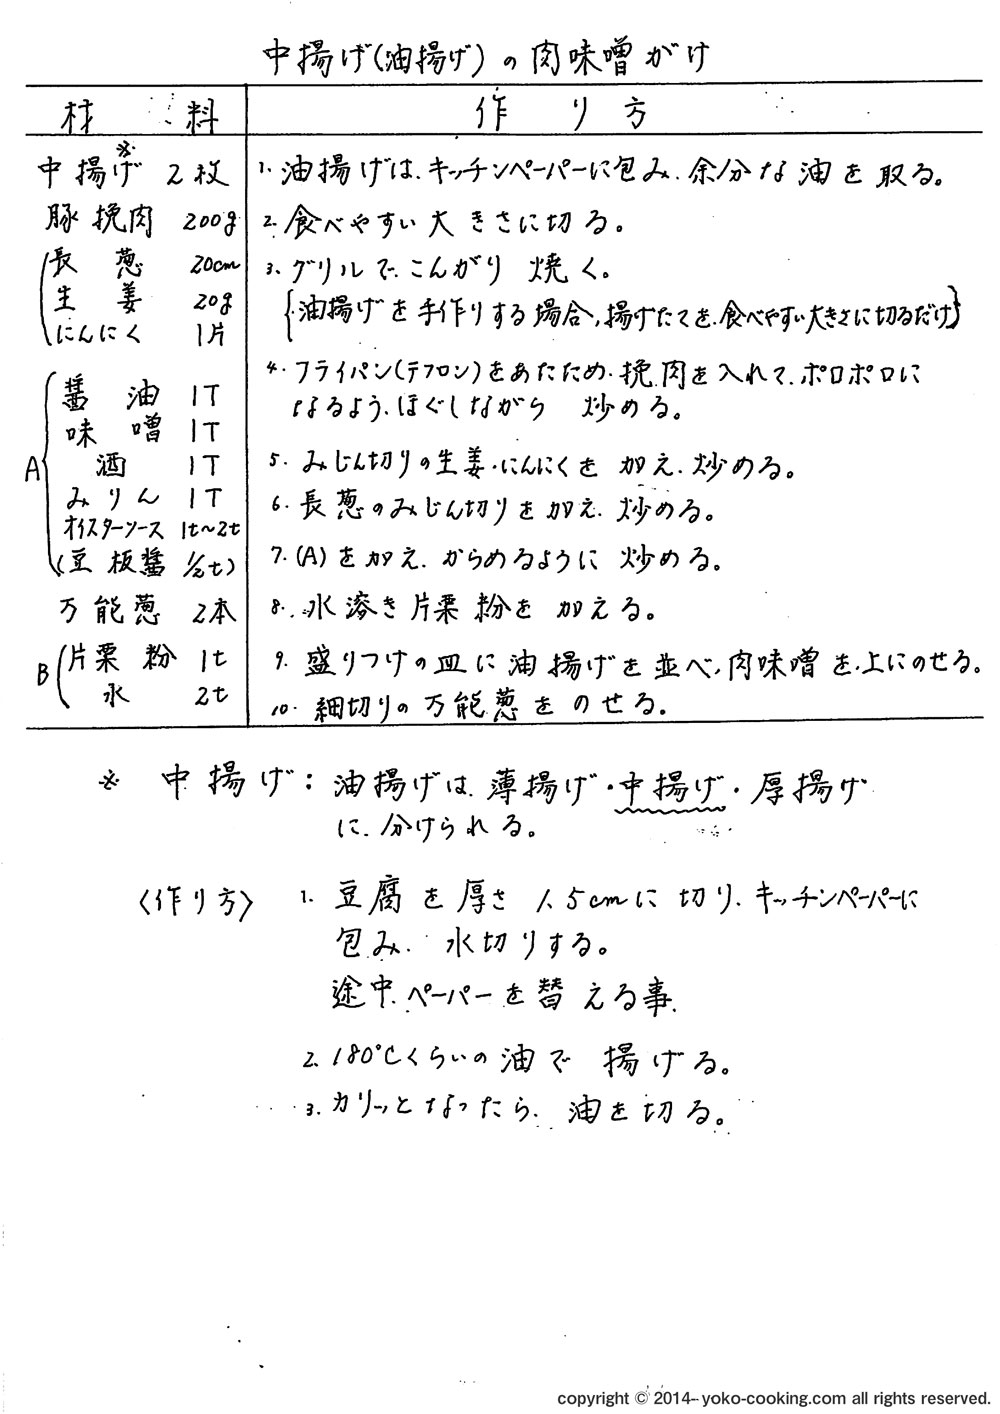 中揚げ(油揚げ)の肉味噌がけ
材料
作り方
中揚げ※ 2枚
豚挽肉 200g
長葱 20cm
生姜 20g
にんにく 1片
A
醤油 1T
味噌 1T
酒 1T
みりん 1T
オイスターソース 1t〜2t
(豆板醤 1/2t)
万能葱 2本
B
片栗粉 1t
水 2t
1. 油揚げは、キッチンペーパーに包み、余分な油を取る。
2. 食べやすい大きさに切る。
3. グリルで、こんがり焼く。
{油揚げを手作りする場合、揚げたてを、食べやすい大きさに切るだけ}
4. フライパン(テフロン)をあたため、挽肉を入れて、ポロポロに
なるよう、ほぐしながら炒める。
5. みじん切りの生姜・にんにくを加え、炒める。
6. 長葱のみじん切りを加え、炒める。
7. (A)を加え、からめるように炒める。
8. 水溶き片栗粉を加える。
9. 盛りつけの皿に油揚げを並べ、肉味噌を、上にのせる。
10. 細切りの万能葱をのせる。
※ 中揚げ：油揚げは、薄揚げ・中揚げ・厚揚げ
に、分けられる。
〈作り方〉 1. 豆腐を厚さ1.5cmに切り、キッチンペーパーに
包み、水切りする。
途中、ペーパーを替える事。
2. 180℃くらいの油で揚げる。
3. カリッとなったら、油を切る。
copyright © 2014- yoko-cooking.com all rights reserved.